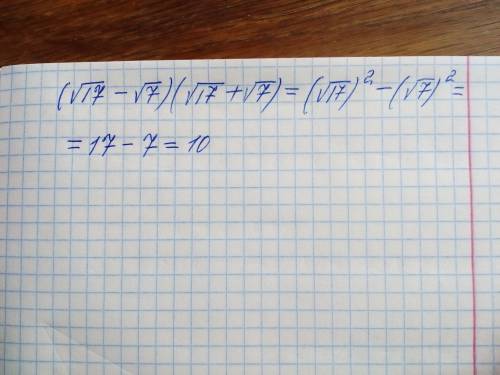 (√17 − √7)(√17 + √7) = (√17)² − (√7)² =
= 17 − 7 = 10